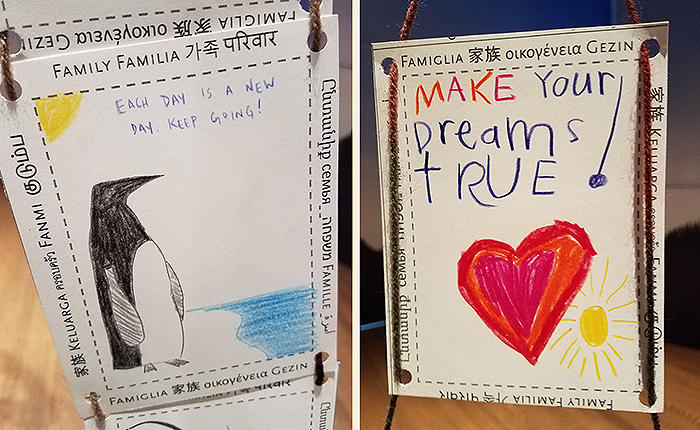 FAMIGLIA 家族 οικογένεια GEZIN
FAMILY FAMILIA 가족 परिवार
EACH DAY IS A NEW
DAY. KEEP GOING!
家族 KELUARGA ครอบครัว FANMI குடும்ப
Ընտանիք семья משפחה FAMILLE أسرة
FAMIGLIA 家族 οικογένεια GEZIN
FAMILY FAMILIA 가족 परिवार
FAMIGLIA 家族 οικογένεια GEZIN
MAKE Your
Dreams
tRUE !
家族 KELUARGA ครอบครัว
Ընտանիք семья
FAMILY FAMILIA 가족 परिवार